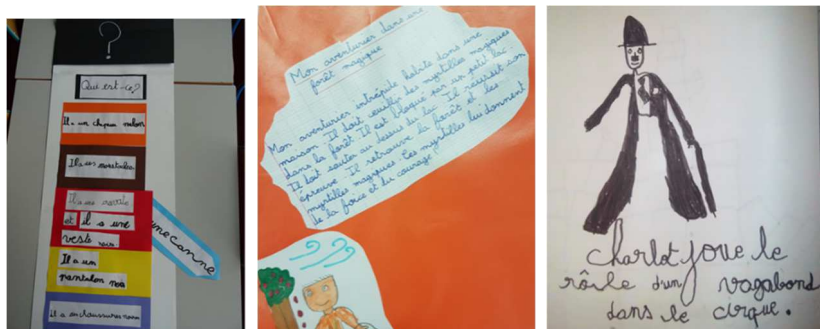 ?
Qui est-ce?
Il a un chapeau melon
Il a une moustache
Il a une
et il a une
veste noire
une canne
Il a un
pantalon noir
Il a des chaussures noires
Mon aventurier dans une
forêt magique
Mon aventurier intrépide habite dans une
maison. Il doit cueillir des myrtilles magiques
dans la forêt. Il est bloqué par un petit lac.
Il doit sauter au dessus du lac. Il réussit son
épreuve. Il retrouve la forêt et les
myrtilles magiques. Ces myrtilles lui donnent
de la force et du courage.
charlot joue le
rôle d'un vagabond
dans le cirque.